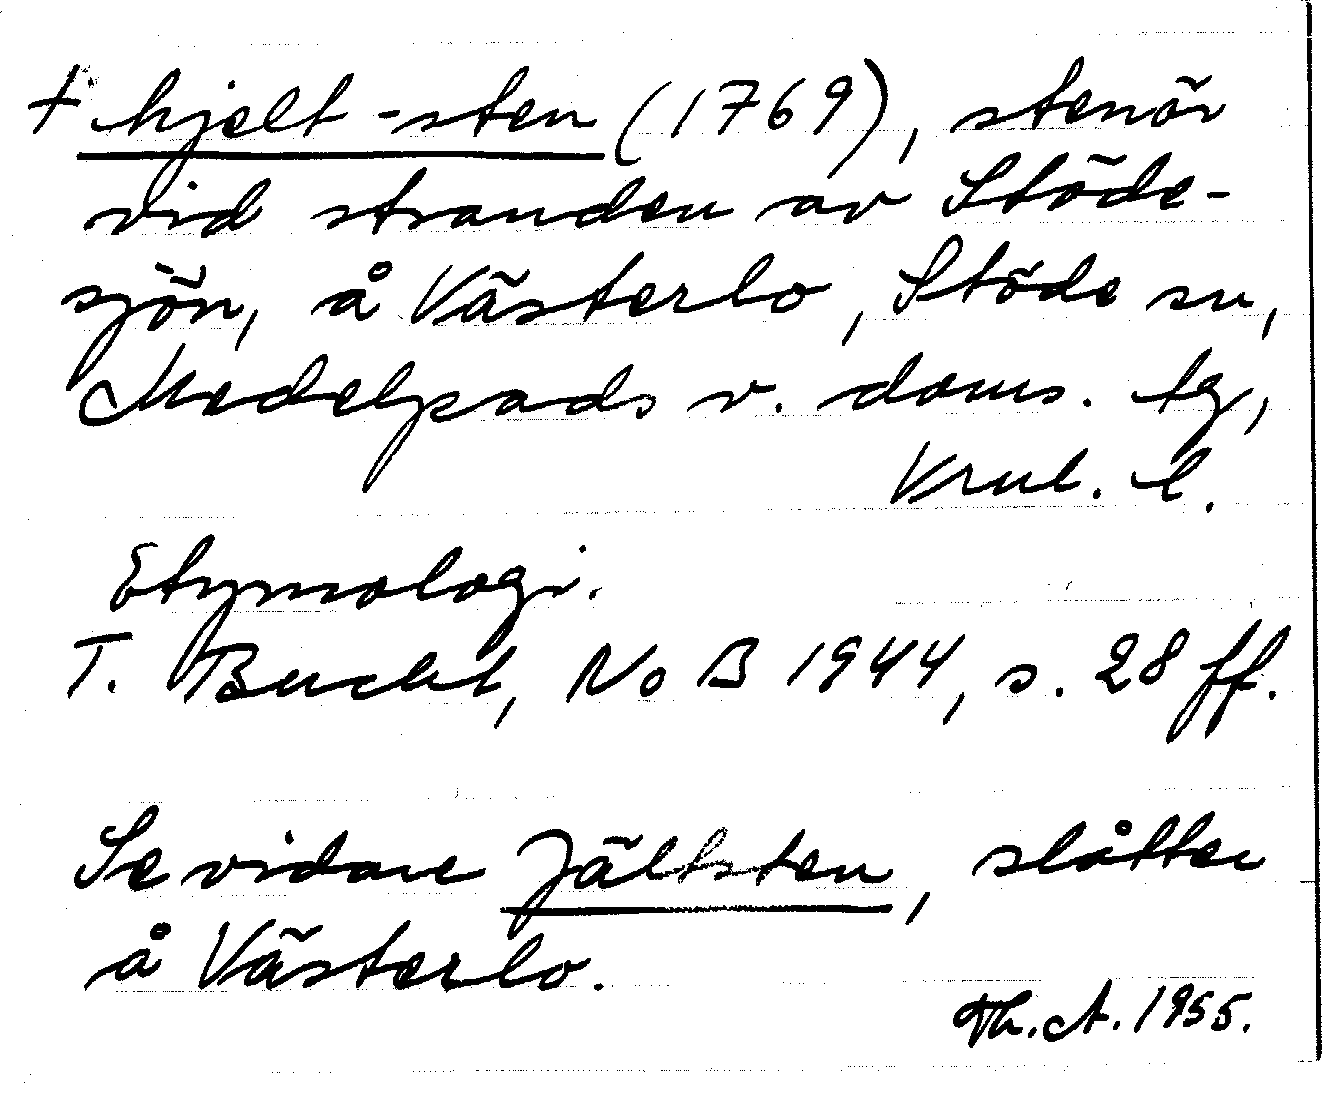 † hjelt-sten (1769), stenör
vid stranden av Stöde-
sjön, å Västerlo, Stöde sn,
Medelpads v. doms. tg,
Vrnl. l.
Etymologi.
T. Bucht, NoB 1944, s. 28 ff.
Se vidare Jältsten, slåtter
å Västerlo.
Th. A. 1955.